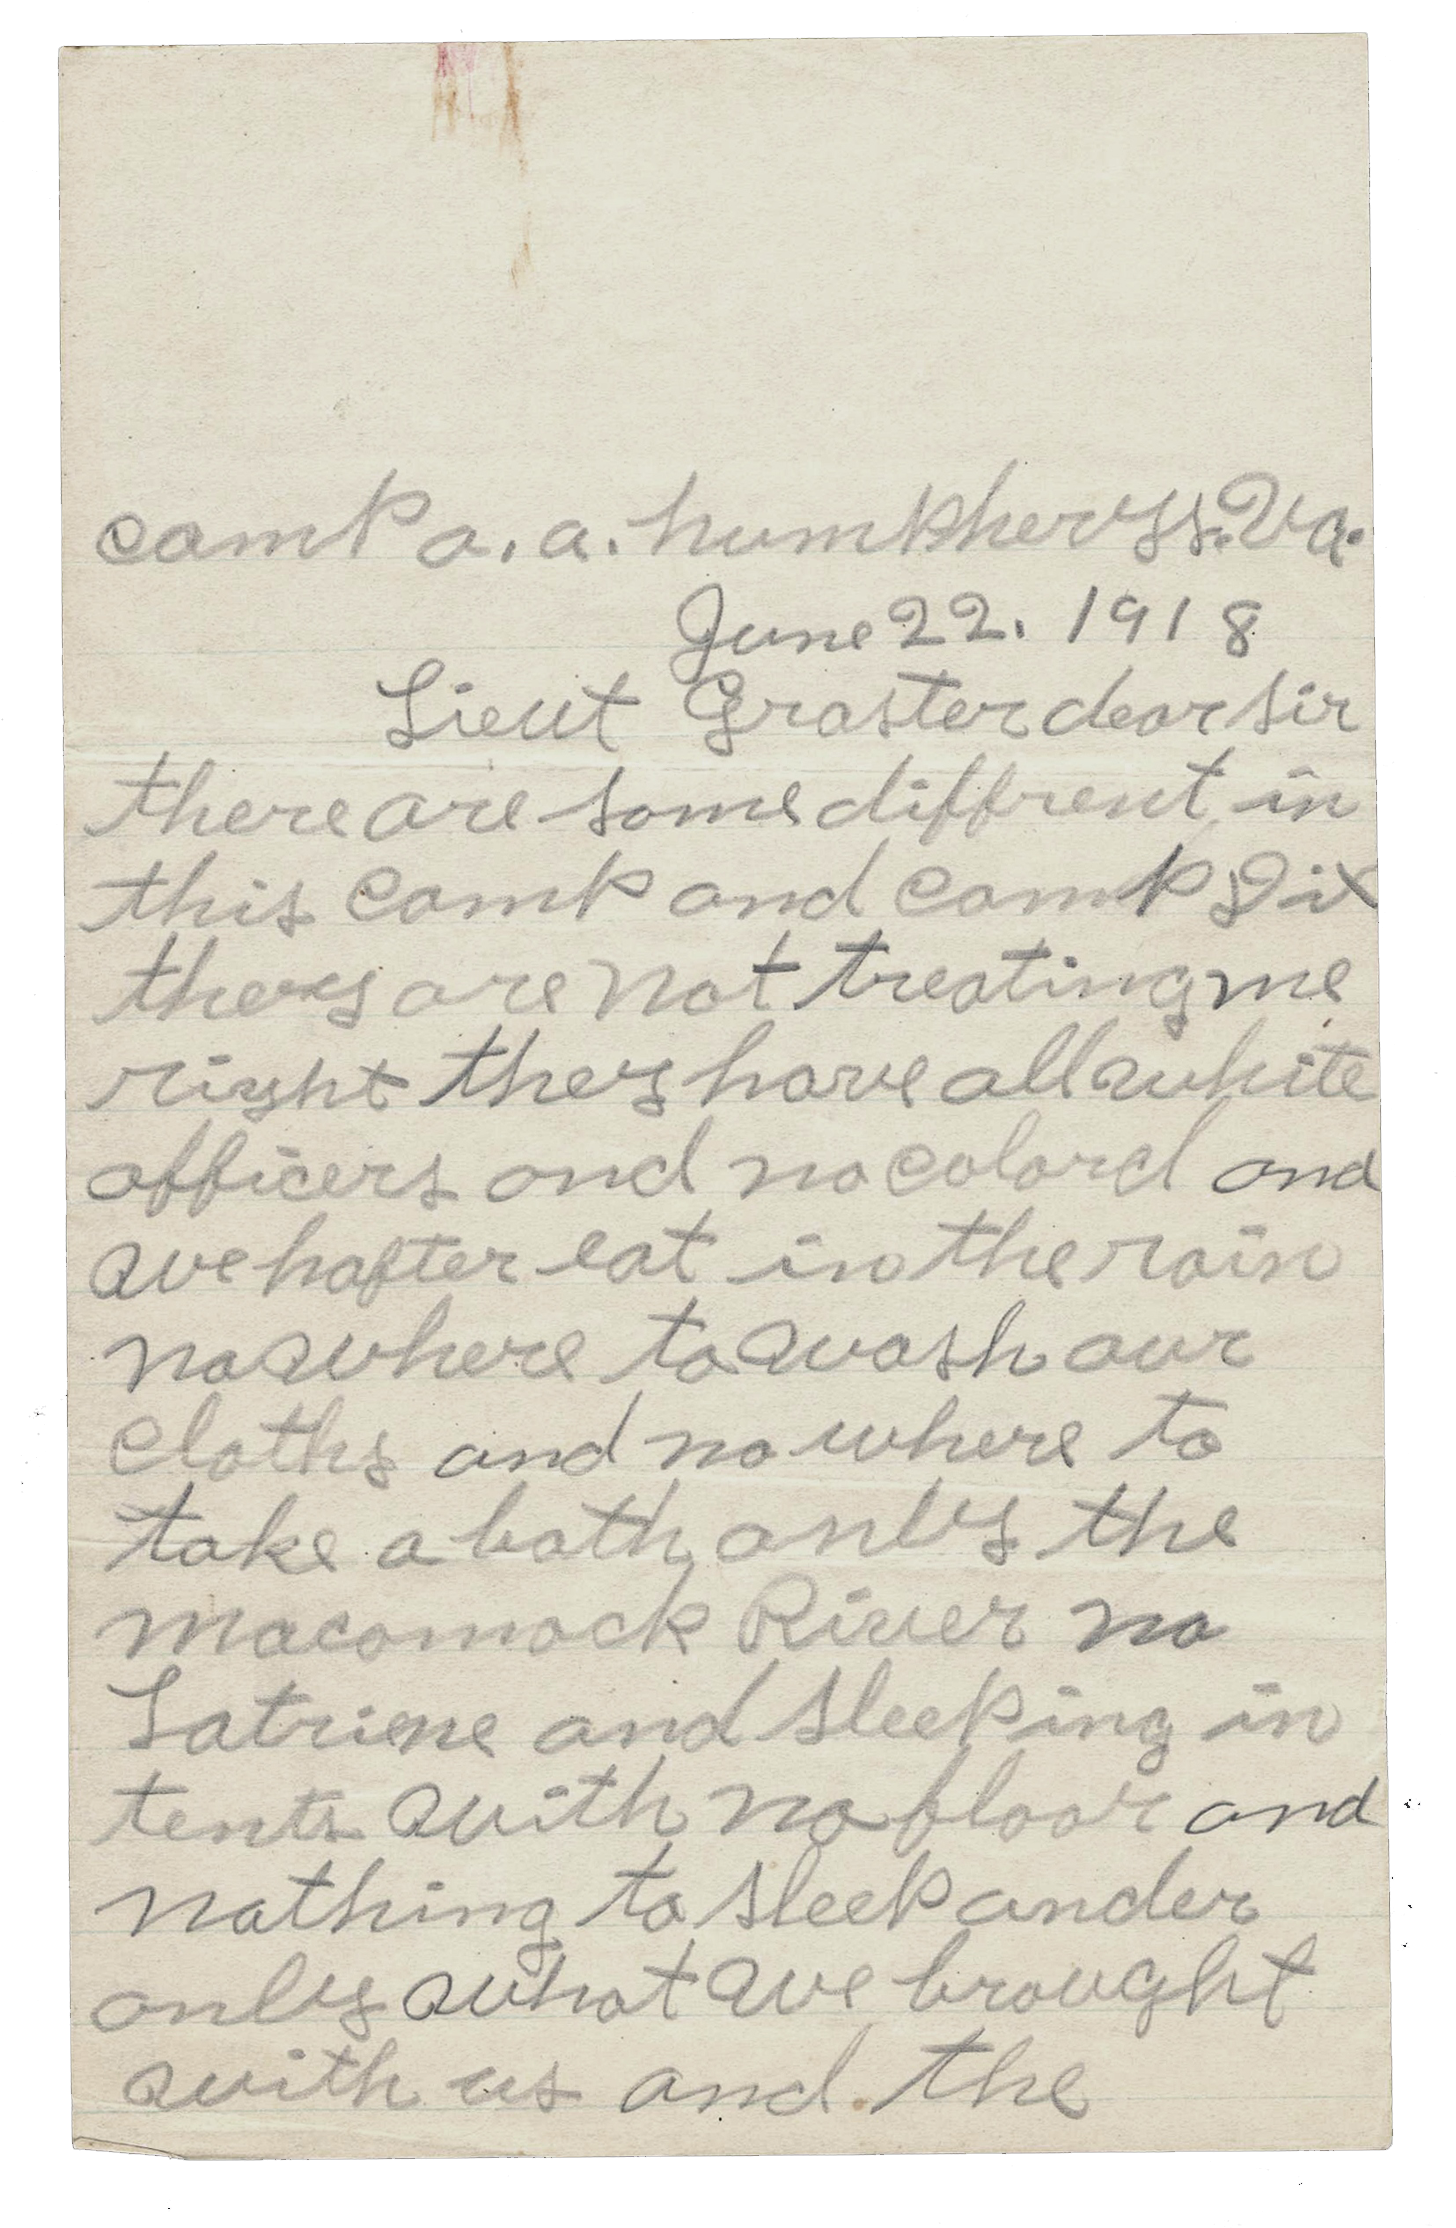 camp a. a. humpherys. Va.
June 22. 1918
Lieut Graster dear sir
there are some diffrent in
this camp and camp Dix
they are not treating me
right they have all white
officers and no colord and
we hafter eat in the rain
no where to wash our
cloths and no where to
take a bath only the
macomack River no
Latriene and sleeping in
tents with no floor and
nothing to sleep under
only what we brought
with us and the